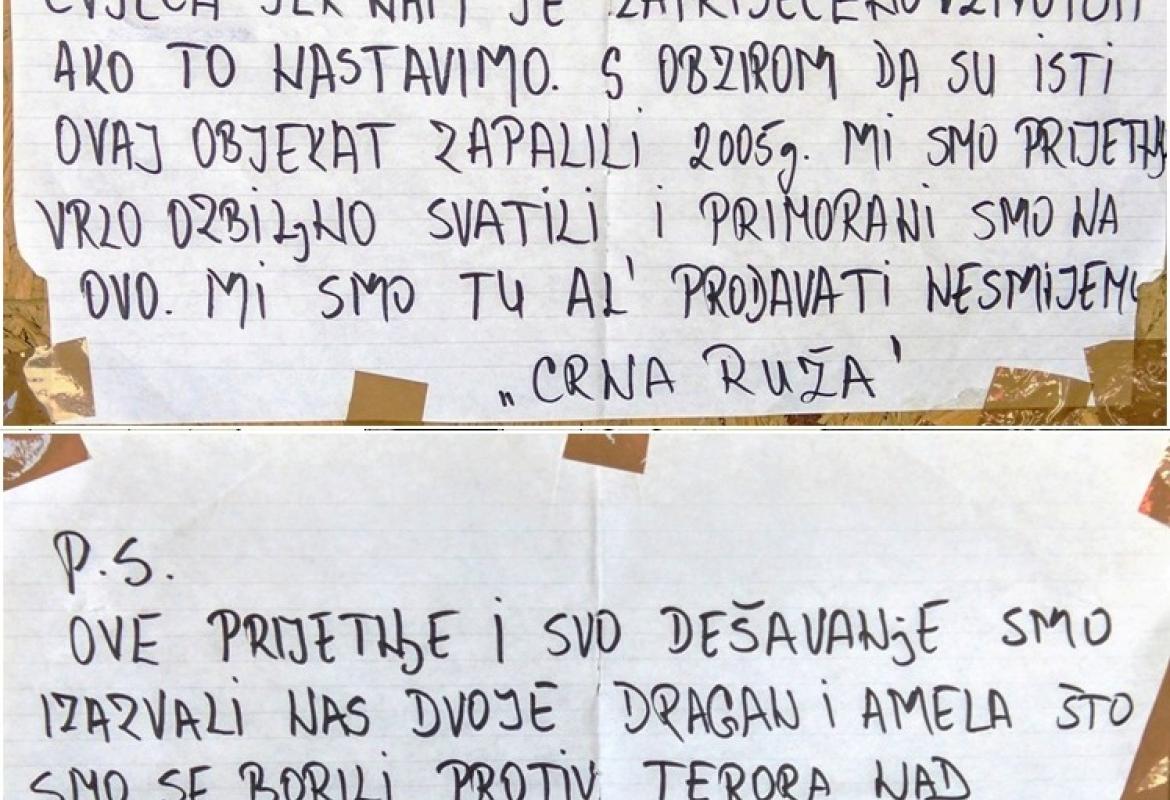 CVIJEĆA JER NAM JE ZAPRIJEĆENO ŽIVOTOM
AKO TO NASTAVIMO. S OBZIROM DA SU ISTI
OVAJ OBJEKAT ZAPALILI 2005g. MI SMO PRIJETNJ
VRLO OZBILJNO SVATILI I PRIMORANI SMO NA
OVO. MI SMO TU AL' PRODAVATI NESMIJEMO
„CRNA RUŽA'
P.S.
OVE PRIJETNJE I SVO DEŠAVANJE SMO
IZAZVALI NAS DVOJE DRAGAN I AMELA ŠTO
SMO SE BORILI PROTIV TERORA NAD